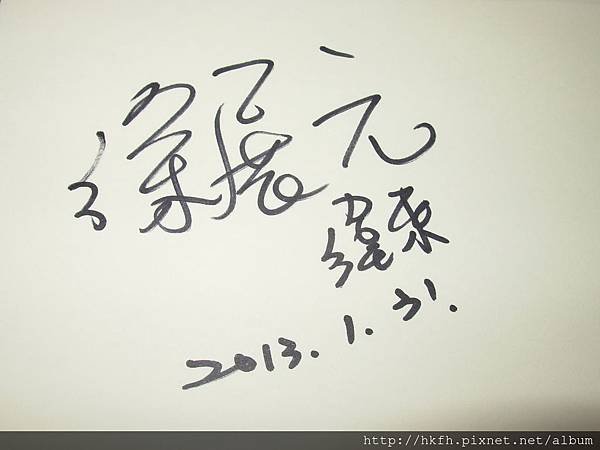 徐展元
緯來
2013.1.31.
http://hkfh.pixnet.net/album